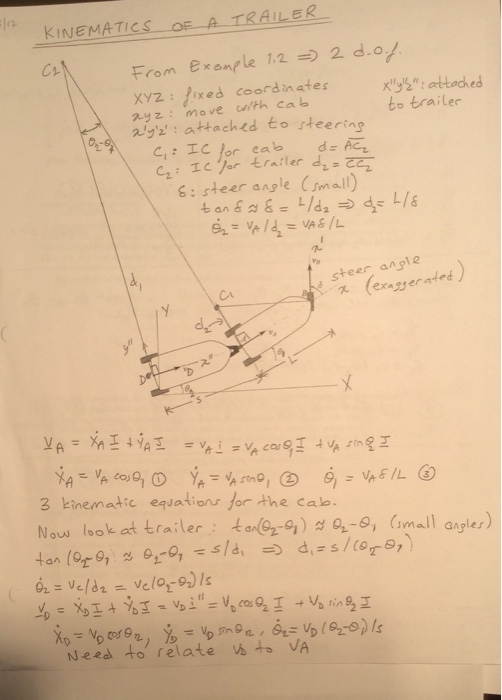 KINEMATICS OF A TRAILER
From Example 1.2 ⇒ 2 d.o.f.
XYZ : fixed coordinates
xyz : move with cab
x'y'z' : attached to steering
x"y"z" : attached to trailer
C₁ : IC for cab d = AC₂
C₂ : IC for trailer d₂ = CC₂
δ : steer angle (small)
tan δ ≈ δ = L/d₂ ⇒ d₂ = L/δ
θ̇₂ = V_A/d₂ = V_Aδ/L
C₂
θ₂-θ₁
d₁
x'
steer angle
x (exaggerated)
C₁
Y
d₂
y"
x"
D
L
θ₁
θ₂
S
X
V_A = Ẋ_A I + Ẏ_A J = V_A i = V_A cosθ₁ I + V_A sinθ₂ J
Ẋ_A = V_A cosθ₁ ① Ẏ_A = V_A sinθ₁ ② θ̇₁ = V_Aδ/L ③
3 kinematic equations for the cab.
Now look at trailer : tan(θ₂-θ₁) ≈ θ₂-θ₁ (small angles)
tan (θ₂-θ₁) ≈ θ₂-θ₁ = s/d₁ ⇒ d₁ = s/(θ₂-θ₁)
θ̇₂ = V_C/d₂ = V_C(θ₂-θ₁)/s
V_D = Ẋ_D I + Ẏ_D J = V_D i" = V_D cosθ₂ I + V_D sinθ₂ J
Ẋ_D = V_D cosθ₂, Ẏ_D = V_D sinθ₂, θ̇₂ = V_D(θ₂-θ₁)/s
Need to relate V_D to V_A